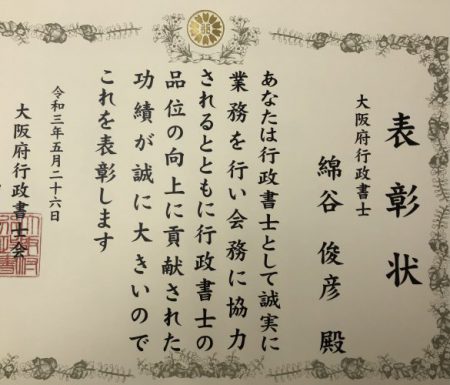 表彰状
大阪府行政書士
綿谷俊彦殿
あなたは行政書士として誠実に
業務を行い会務に協力
されるとともに行政書士の
品位の向上に貢献された
功績が誠に大きいので
これを表彰します
令和三年五月二十六日
大阪府行政書士会